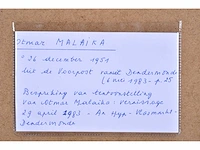 Otmar MALAIKA
° 26 december 1951
Uit de Voorpost vanuit Dendermonde
(6 mei 1983 - p. 25
Bespreking van tentoonstelling
van Otmar Malaika - Vernissage
29 april 1983 - An Hyp - Vlasmarkt -
Dendermonde